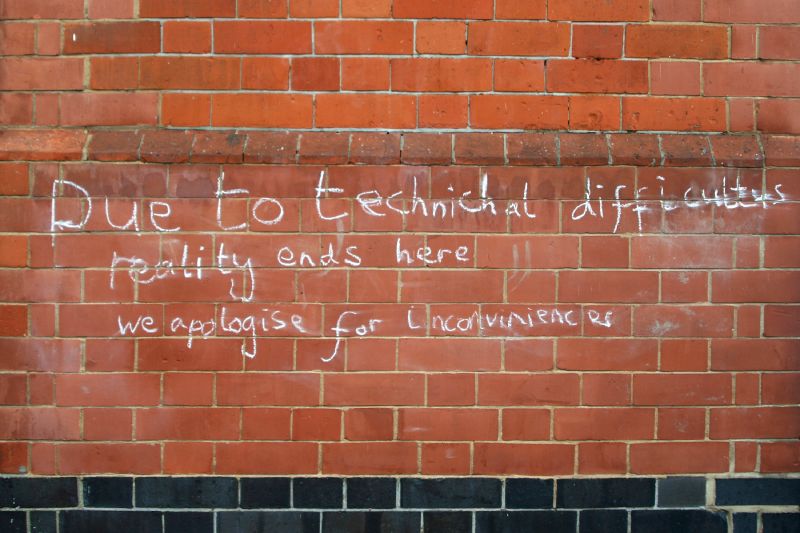 Due to technichal difficultys
reality ends here
we apologise for inconviniencies